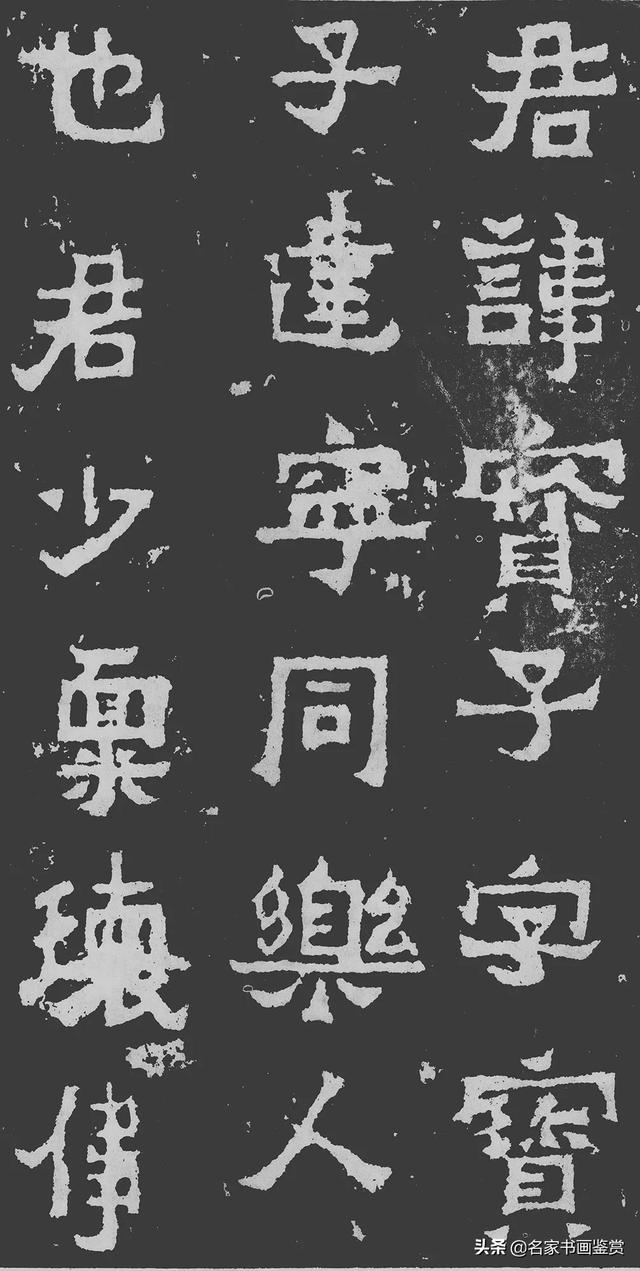 君諱寶子字寶
子建寧同樂人
也君少稟瓌偉
头条 @名家书画鉴赏